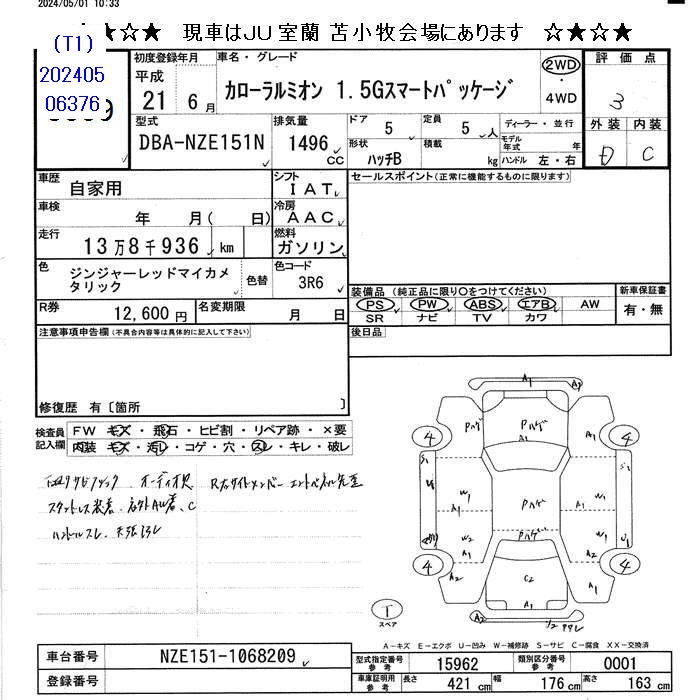 2024/05/01 10:33
☆☆★ 現車はJU室蘭 苫小牧会場にあります ☆★☆★
(T1)
202405
06376
初度登録年月
平成
21 6月
車名・グレード
カローラルミオン 1.5Gスマートパッケージ
2WD
4WD
評価点
3
型式
DBA-NZE151N
排気量
1496
CC
ドア
5
定員
5人
ディーラー・並行
形状
ハッチB
積載
kg
モデル年式
年
ハンドル 左・右
外装 内装
D C
車歴
自家用
シフト
IAT
セールスポイント(正常に機能するものに限ります)
車検
年 月( 日)
冷房
AAC
走行
13万8千936 km
燃料
ガソリン
色
ジンジャーレッドマイカメタリック
色替
色コード
3R6
装備品(純正品に限り○をつけてください)
新車保証書
PS PW ABS エアB AW
有・無
SR ナビ TV カワ
R券
12,600円
名変期限
月 日
注意事項申告欄(不具合内容等は具体的に記入して下さい)
後日品
修復歴 有〔箇所 〕
検査員記入欄
FW キズ・飛石・ヒビ割・リペア跡・×要
内装 キズ・汚レ・コゲ・穴・スレ・キレ・破レ
ハンドルスレ
A1
A2
Pハゲ
Pハゲ
A1
A1
4
4
S1
S1
W1
A1
Pハゲ
W1
A1
Pハゲ
W2
A1
U1
4
4
A2
C2
A2
A1
A2
T
スペア
A-キズ E-エクボ U-凹み W-補修跡 S-サビ C-腐食 XX-交換済
車台番号
NZE151-1068209
登録番号
型式指定番号
参考
15962
類別区分番号
参考
0001
車庫証明用
参考
長さ
421 cm
幅
176 cm
高さ
163 cm